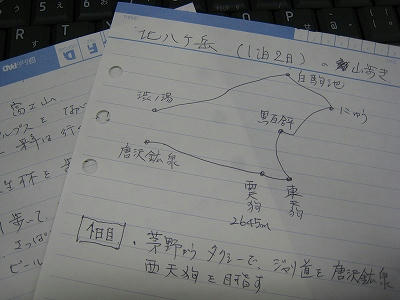 北八ヶ岳 (1泊2日) の 山歩き
白駒池
渋ノ湯
にゅう
黒百合平
唐沢鉱泉
西天狗
2645m
東天狗
1日目 ・茅野からタクシーで、ジャリ道を唐沢鉱泉
西天狗を目指す
富士山
アルプスを
来年は行
生杯を
り歩いて
さっぱ
ビール